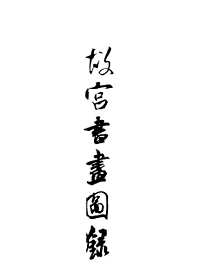 故宮書畫圖錄